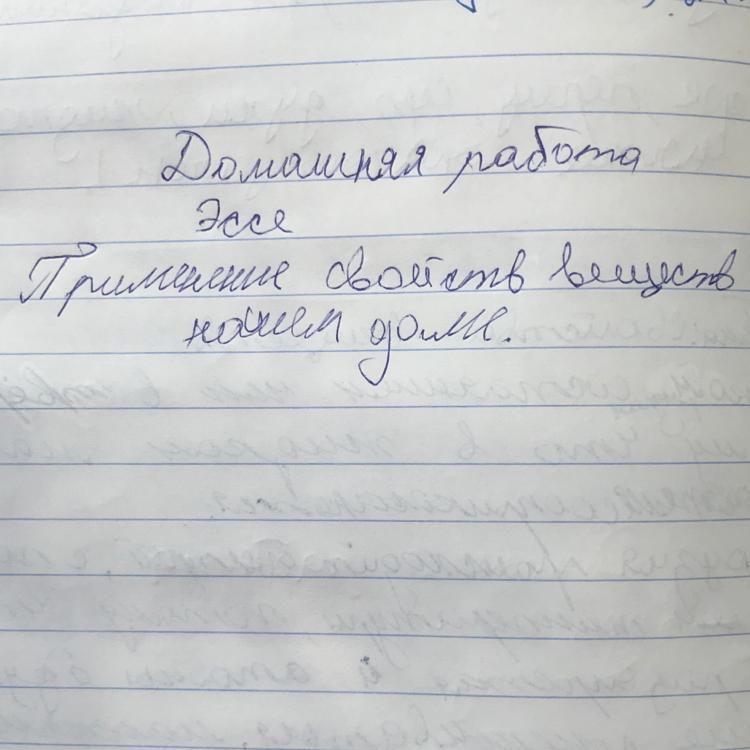 Домашняя работа
Эссе
Применение свойств веществ
нашем доме.